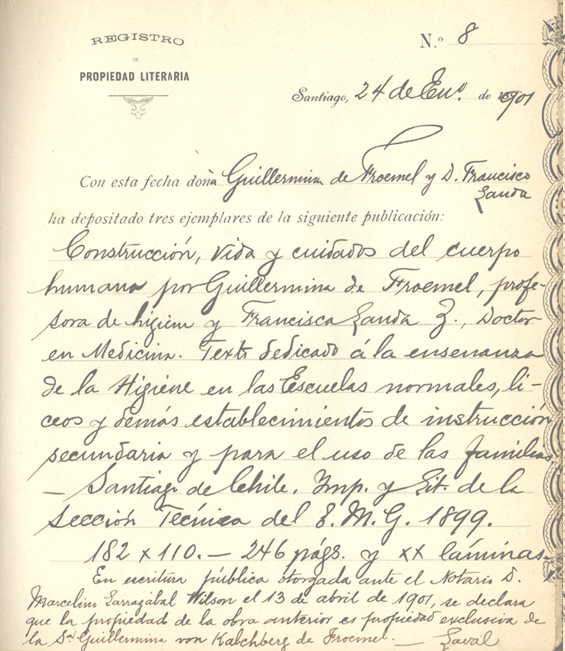 REGISTRO
DE
PROPIEDAD LITERARIA
N.o 8
Santiago, 24 de Eno. de 1901
Con esta fecha doña Guillermina de Froemel y D. Francisco
Landa
ha depositado tres ejemplares de la siguiente publicación:
Construcción, vida y cuidados del cuerpo
humano por Guillermina de Froemel, profe-
sora de higiene y Francisca Landa Z., Doctor
en Medicina. Texto dedicado á la enseñanza
de la Higiene en las Escuelas normales, li-
ceos y demás establecimientos de instrucción
secundaria y para el uso de las familias.
— Santiago de Chile. Imp. y Lit. de la
Sección Técnica del E. M. G. 1899.
182 x 110. — 246 págs. y XX láminas.
En escritura pública otorgada ante el Notario D.
Marcelino Larrazabal Wilson el 13 de abril de 1901, se declara
que la propiedad de la obra anterior es propiedad exclusiva de
la Sra Guillermina von Kalchberg de Froemel. — Laval